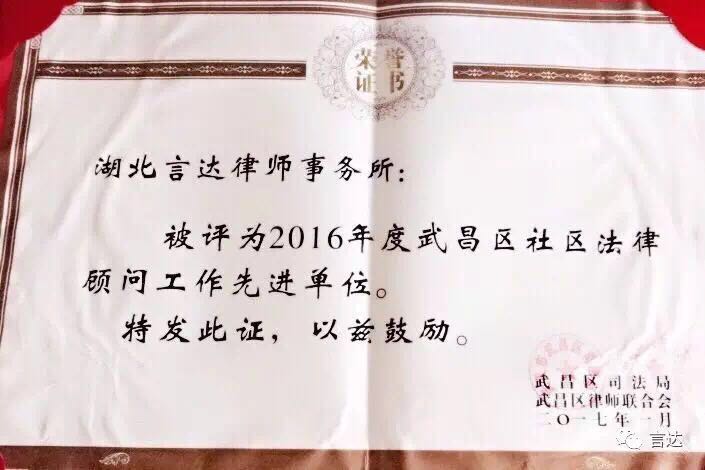 荣誉
证书
湖北言达律师事务所：
被评为2016年度武昌区社区法律
顾问工作先进单位。
特发此证，以兹鼓励。
武昌区司法局
武昌区律师联合会
二〇一七年一月
言达